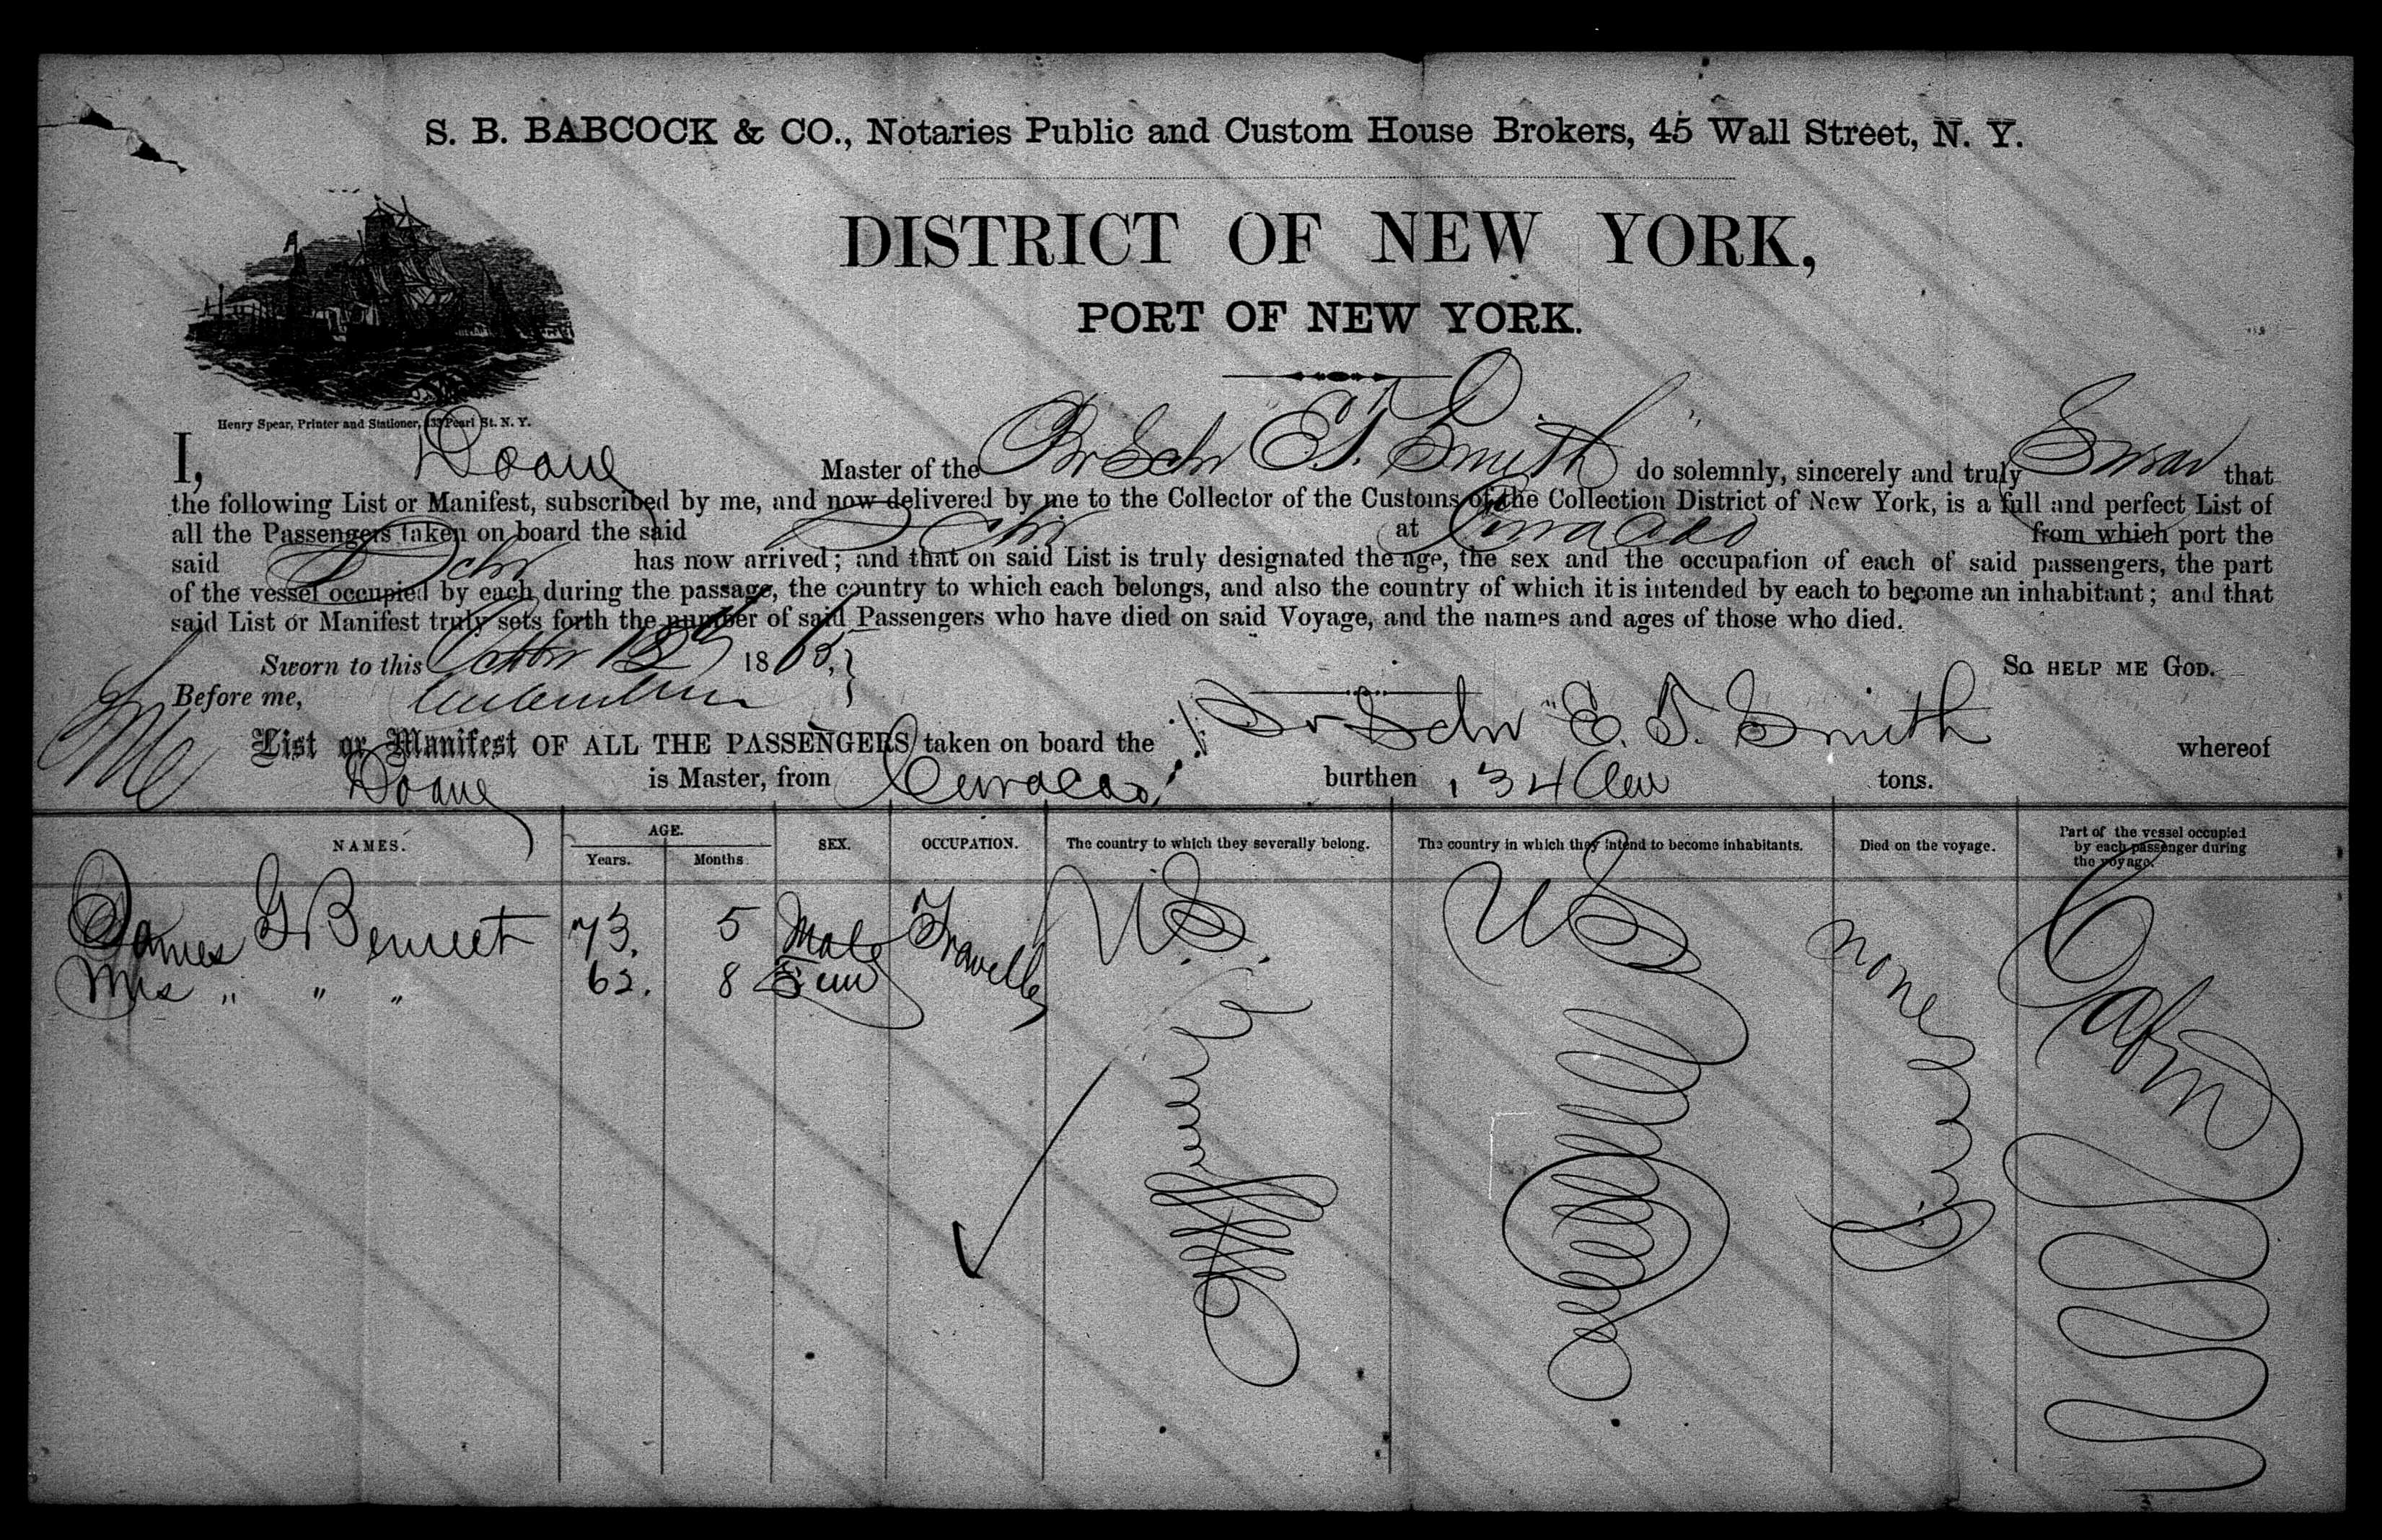 S. B. BABCOCK & CO., Notaries Public and Custom House Brokers, 45 Wall Street, N. Y.
DISTRICT OF NEW YORK,
PORT OF NEW YORK.
Henry Spear, Printer and Stationer, 133 Pearl St. N. Y.
I, Doane Master of the Br Schr E. T. Smith do solemnly, sincerely and truly Swear that
the following List or Manifest, subscribed by me, and now delivered by me to the Collector of the Customs of the Collection District of New York, is a full and perfect List of
all the Passengers taken on board the said Schr at Curacao from which port the
said Schr has now arrived; and that on said List is truly designated the age, the sex and the occupation of each of said passengers, the part
of the vessel occupied by each during the passage, the country to which each belongs, and also the country of which it is intended by each to become an inhabitant; and that
said List or Manifest truly sets forth the number of said Passengers who have died on said Voyage, and the names and ages of those who died.
Sworn to this 1865, SO HELP ME GOD.
Before me,
List or Manifest OF ALL THE PASSENGERS taken on board the Br Schr "E. T. Smith whereof
Doane is Master, from Curacao burthen 134 tons.
NAMES. AGE. SEX. OCCUPATION. The country to which they severally belong. The country in which they intend to become inhabitants. Died on the voyage. Part of the vessel occupied by each passenger during the voyage.
Years. Months.
James G Bennet 73. 5 Male Traveller U.S. US none Cabin
Mrs " " " 62. 8 Fem